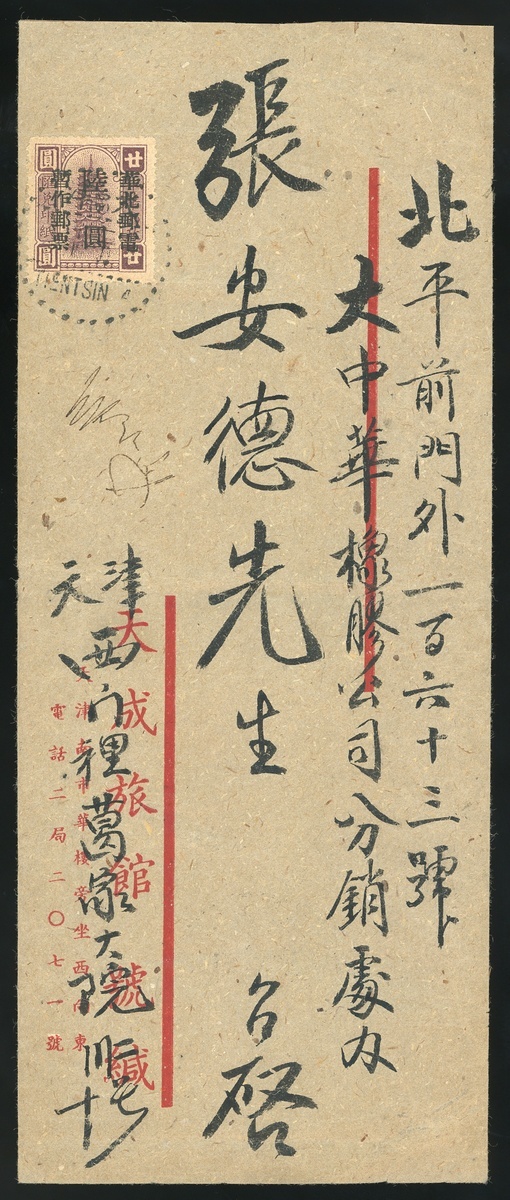 北平前門外一百六十三號
大中華橡膠公司分銷處內
張安德先生 台啓
天津
西門裡葛家大院
天成旅館 號緘
電話二局二〇七一號
華北郵電
陸圓
暫作郵票
廿 圓
廿 圓
TIENTSIN 4